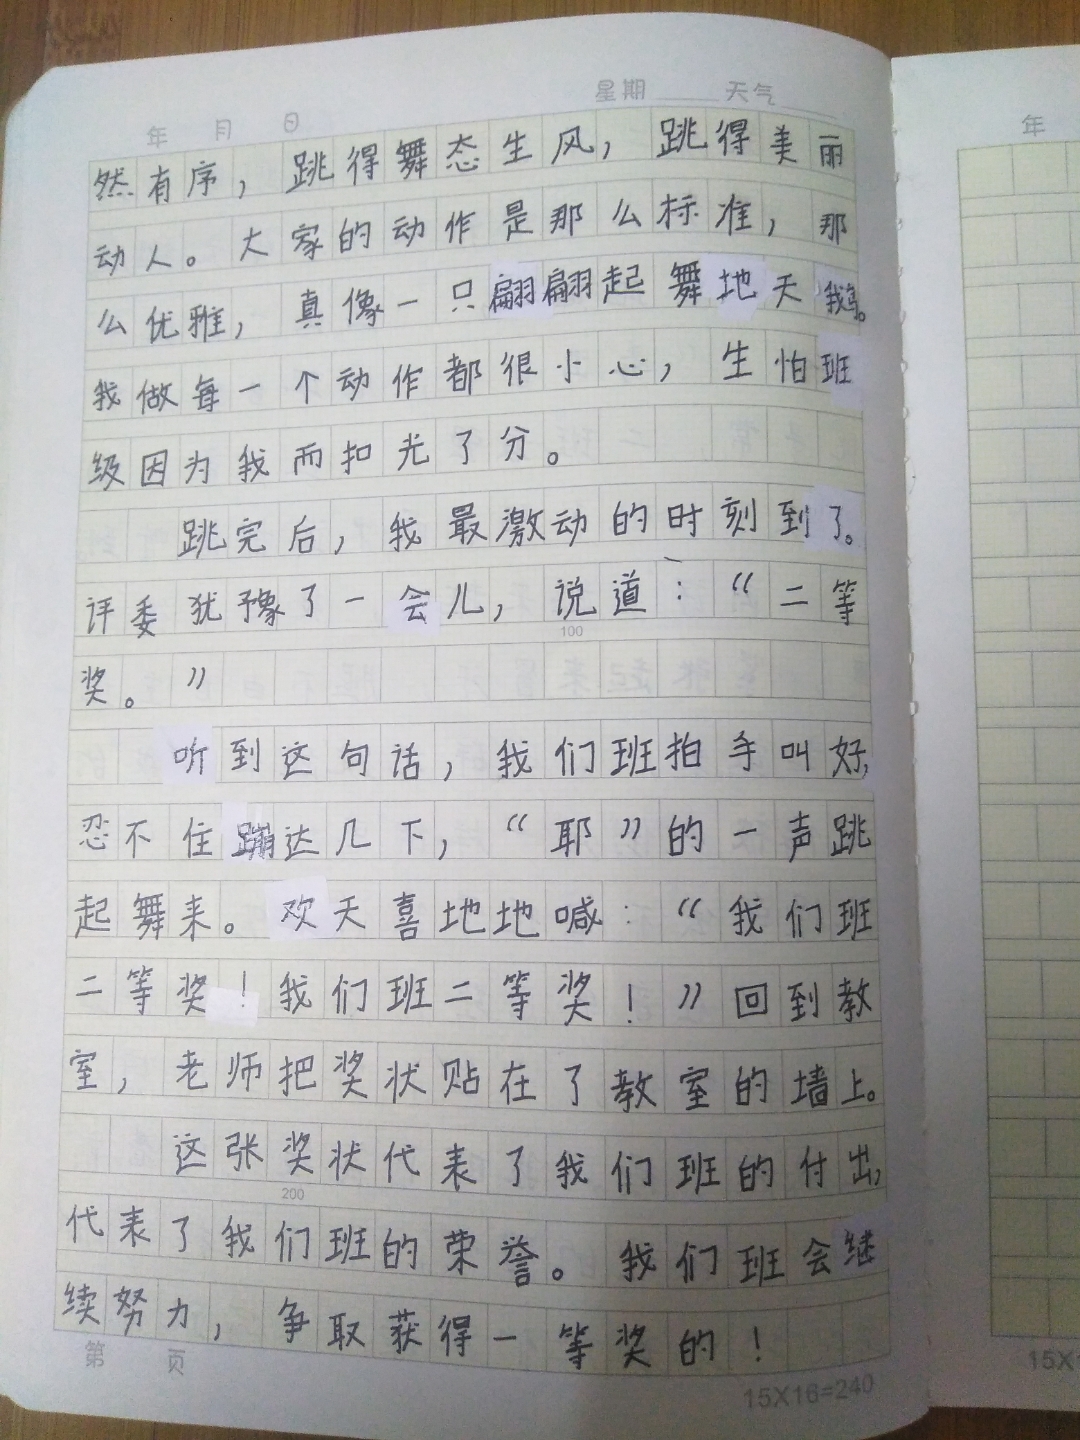 年 月 日 星期 天气
然有序，跳得舞态生风，跳得美丽
动人。大家的动作是那么标准，那
么优雅，真像一只翩翩起舞地天鹅。
我做每一个动作都很小心，生怕班
级因为我而扣光了分。
跳完后，我最激动的时刻到了。
评委犹豫了一会儿，说道：“二等
100
奖。”
听到这句话，我们班拍手叫好，
忍不住蹦达几下，“耶”的一声跳
起舞来。欢天喜地地喊：“我们班
二等奖！我们班二等奖！”回到教
室，老师把奖状贴在了教室的墙上。
这张奖状代表了我们班的付出，
200
代表了我们班的荣誉。我们班会继
续努力，争取获得一等奖的！
第 页
15X16=240
年